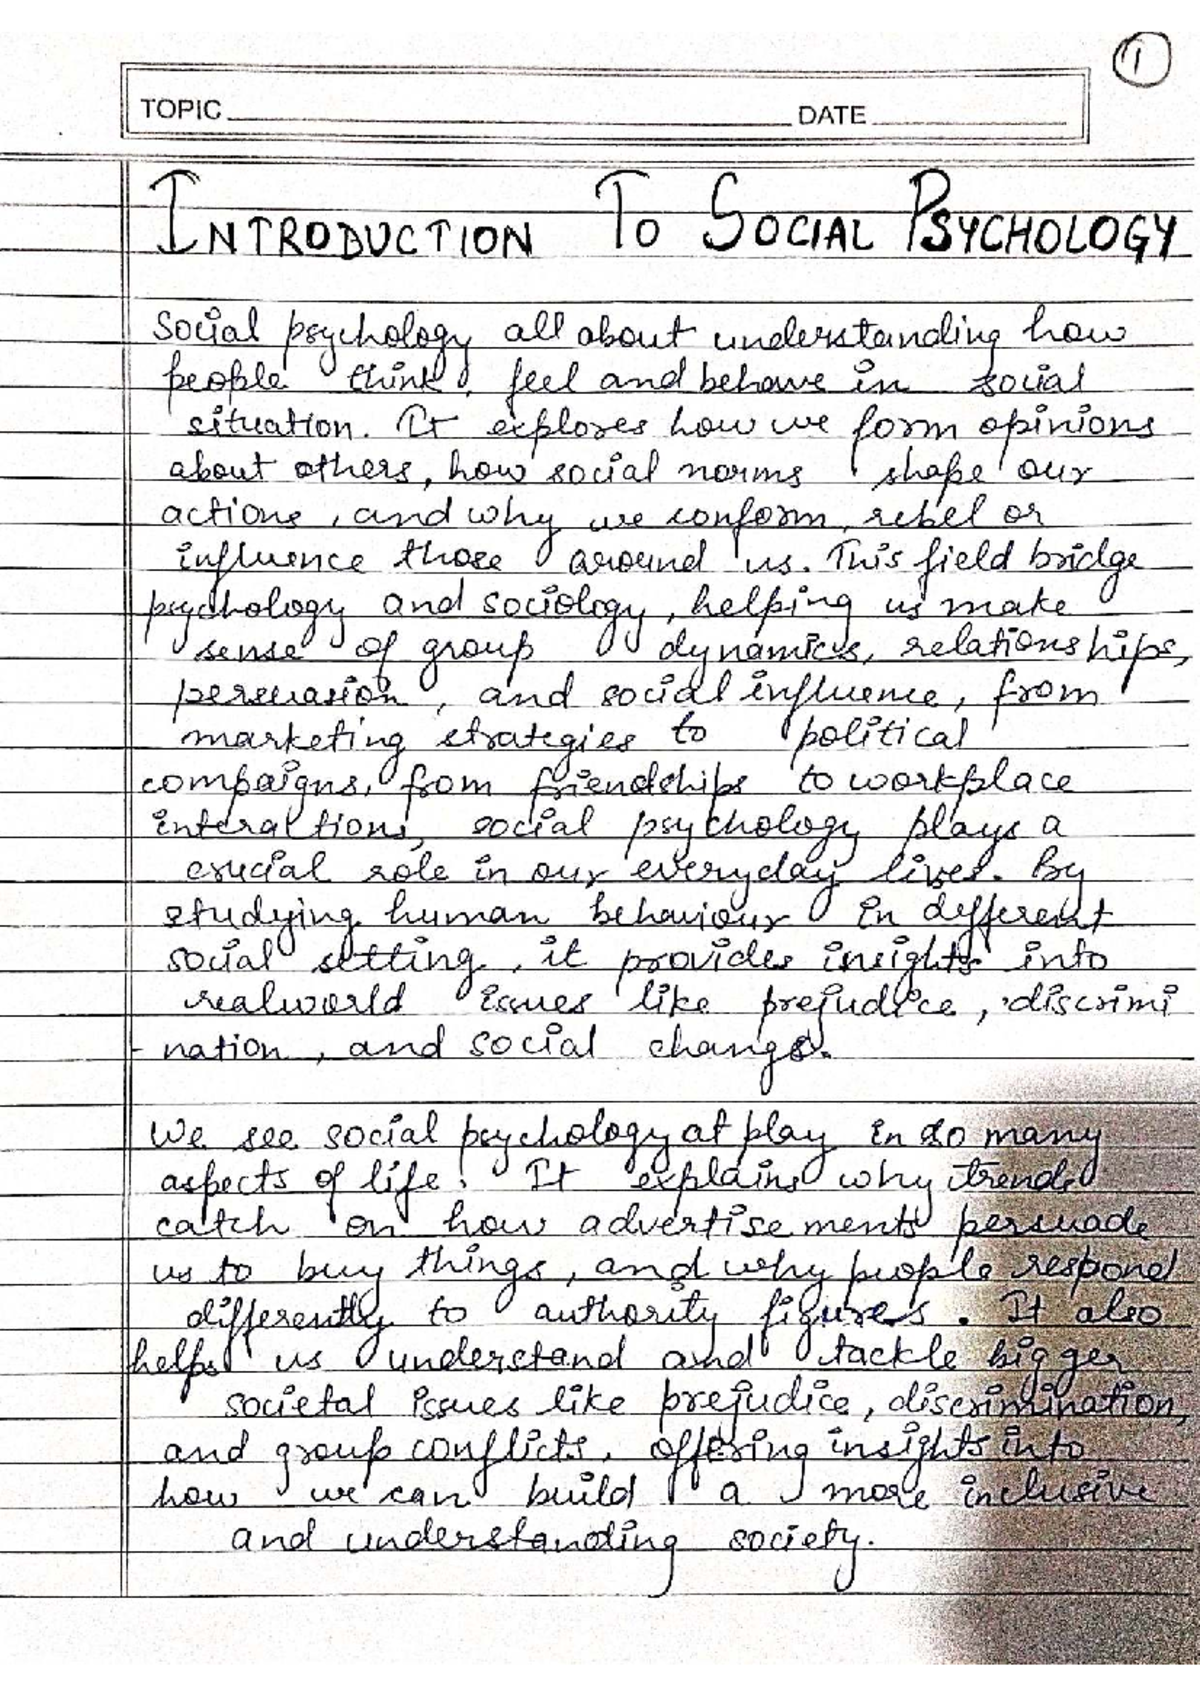 1
TOPIC DATE
INTRODUCTION TO SOCIAL PSYCHOLOGY
Social psychology all about understanding how
people think, feel and behave in social
situation. It explores how we form opinions
about others, how social norms shape our
actions, and why we conform, rebel or
influence those around us. This field bridge
psychology and sociology, helping us make
sense of group dynamics, relationships,
persuasion, and social influence, from
marketing strategies to political
compaigns, from friendships to workplace
interactions, social psychology plays a
crucial role in our everyday lives. By
studying human behaviour in different
social setting, it provides insights into
realworld issues like prejudice, discrimi
- nation, and social change.
We see social psychology at play in so many
aspects of life. It explains why trends
catch on how advertisements persuade
us to buy things, and why people respond
differently to authority figures. It also
helps us understand and tackle bigger
societal issues like prejudice, discrimination,
and group conflicts, offering insights into
how we can build a more inclusive
and understanding society.